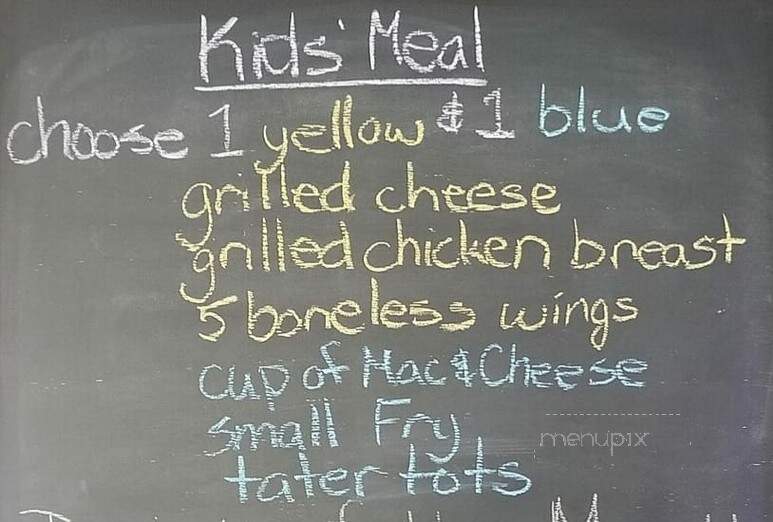 Kids' Meal
choose 1 yellow & 1 blue
grilled cheese
grilled chicken breast
5 boneless wings
cup of Mac & Cheese
small Fry
tater tots
menupix